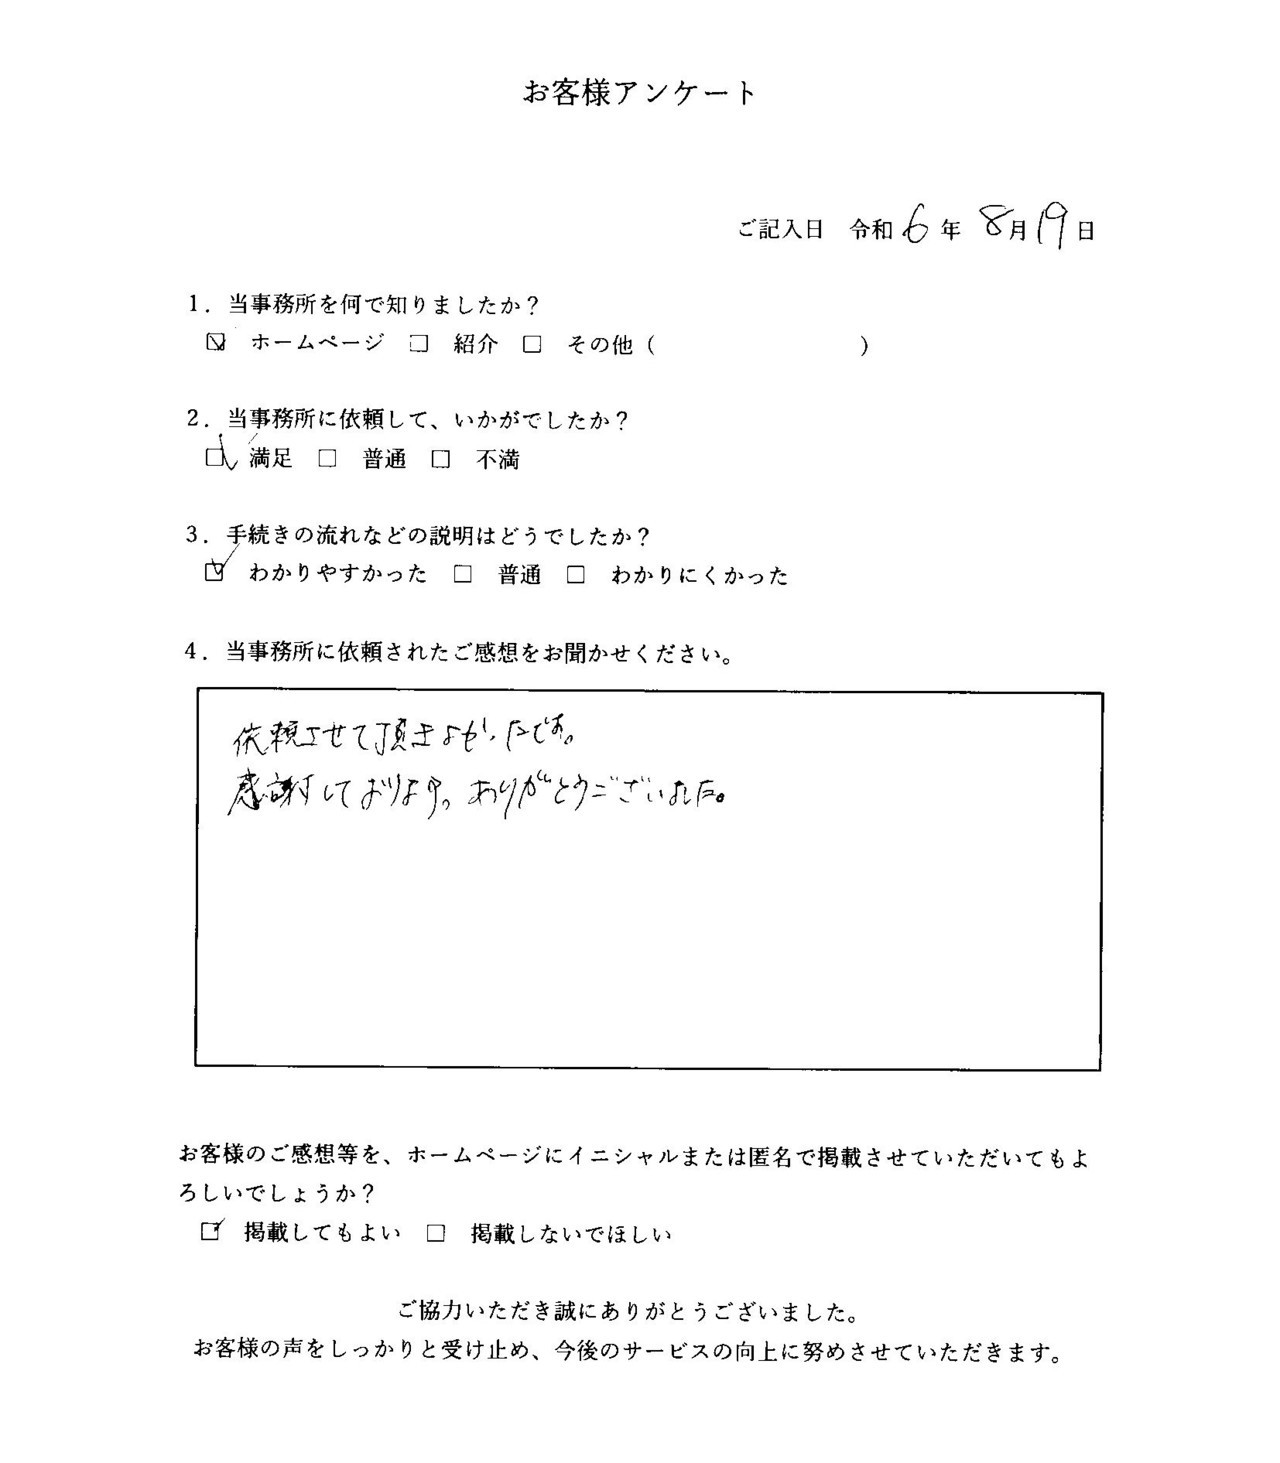 お客様アンケート
ご記入日 令和6年 8月19日
1．当事務所を何で知りましたか？
☑ ホームページ ☐ 紹介 ☐ その他（ ）
2．当事務所に依頼して、いかがでしたか？
☑ 満足 ☐ 普通 ☐ 不満
3．手続きの流れなどの説明はどうでしたか？
☑ わかりやすかった ☐ 普通 ☐ わかりにくかった
4．当事務所に依頼されたご感想をお聞かせください。
依頼させて頂きよかったです。
感謝しております。ありがとうございました。
お客様のご感想等を、ホームページにイニシャルまたは匿名で掲載させていただいてもよ
ろしいでしょうか？
☑ 掲載してもよい ☐ 掲載しないでほしい
ご協力いただき誠にありがとうございました。
お客様の声をしっかりと受け止め、今後のサービスの向上に努めさせていただきます。